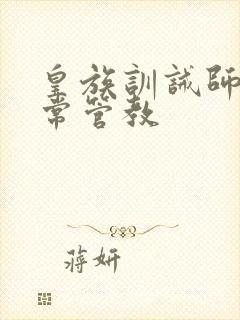 皇族訓誡師
常管教
蔣妍